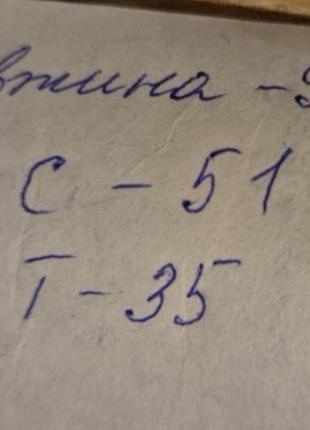 вжина -
С - 51
Т - 35